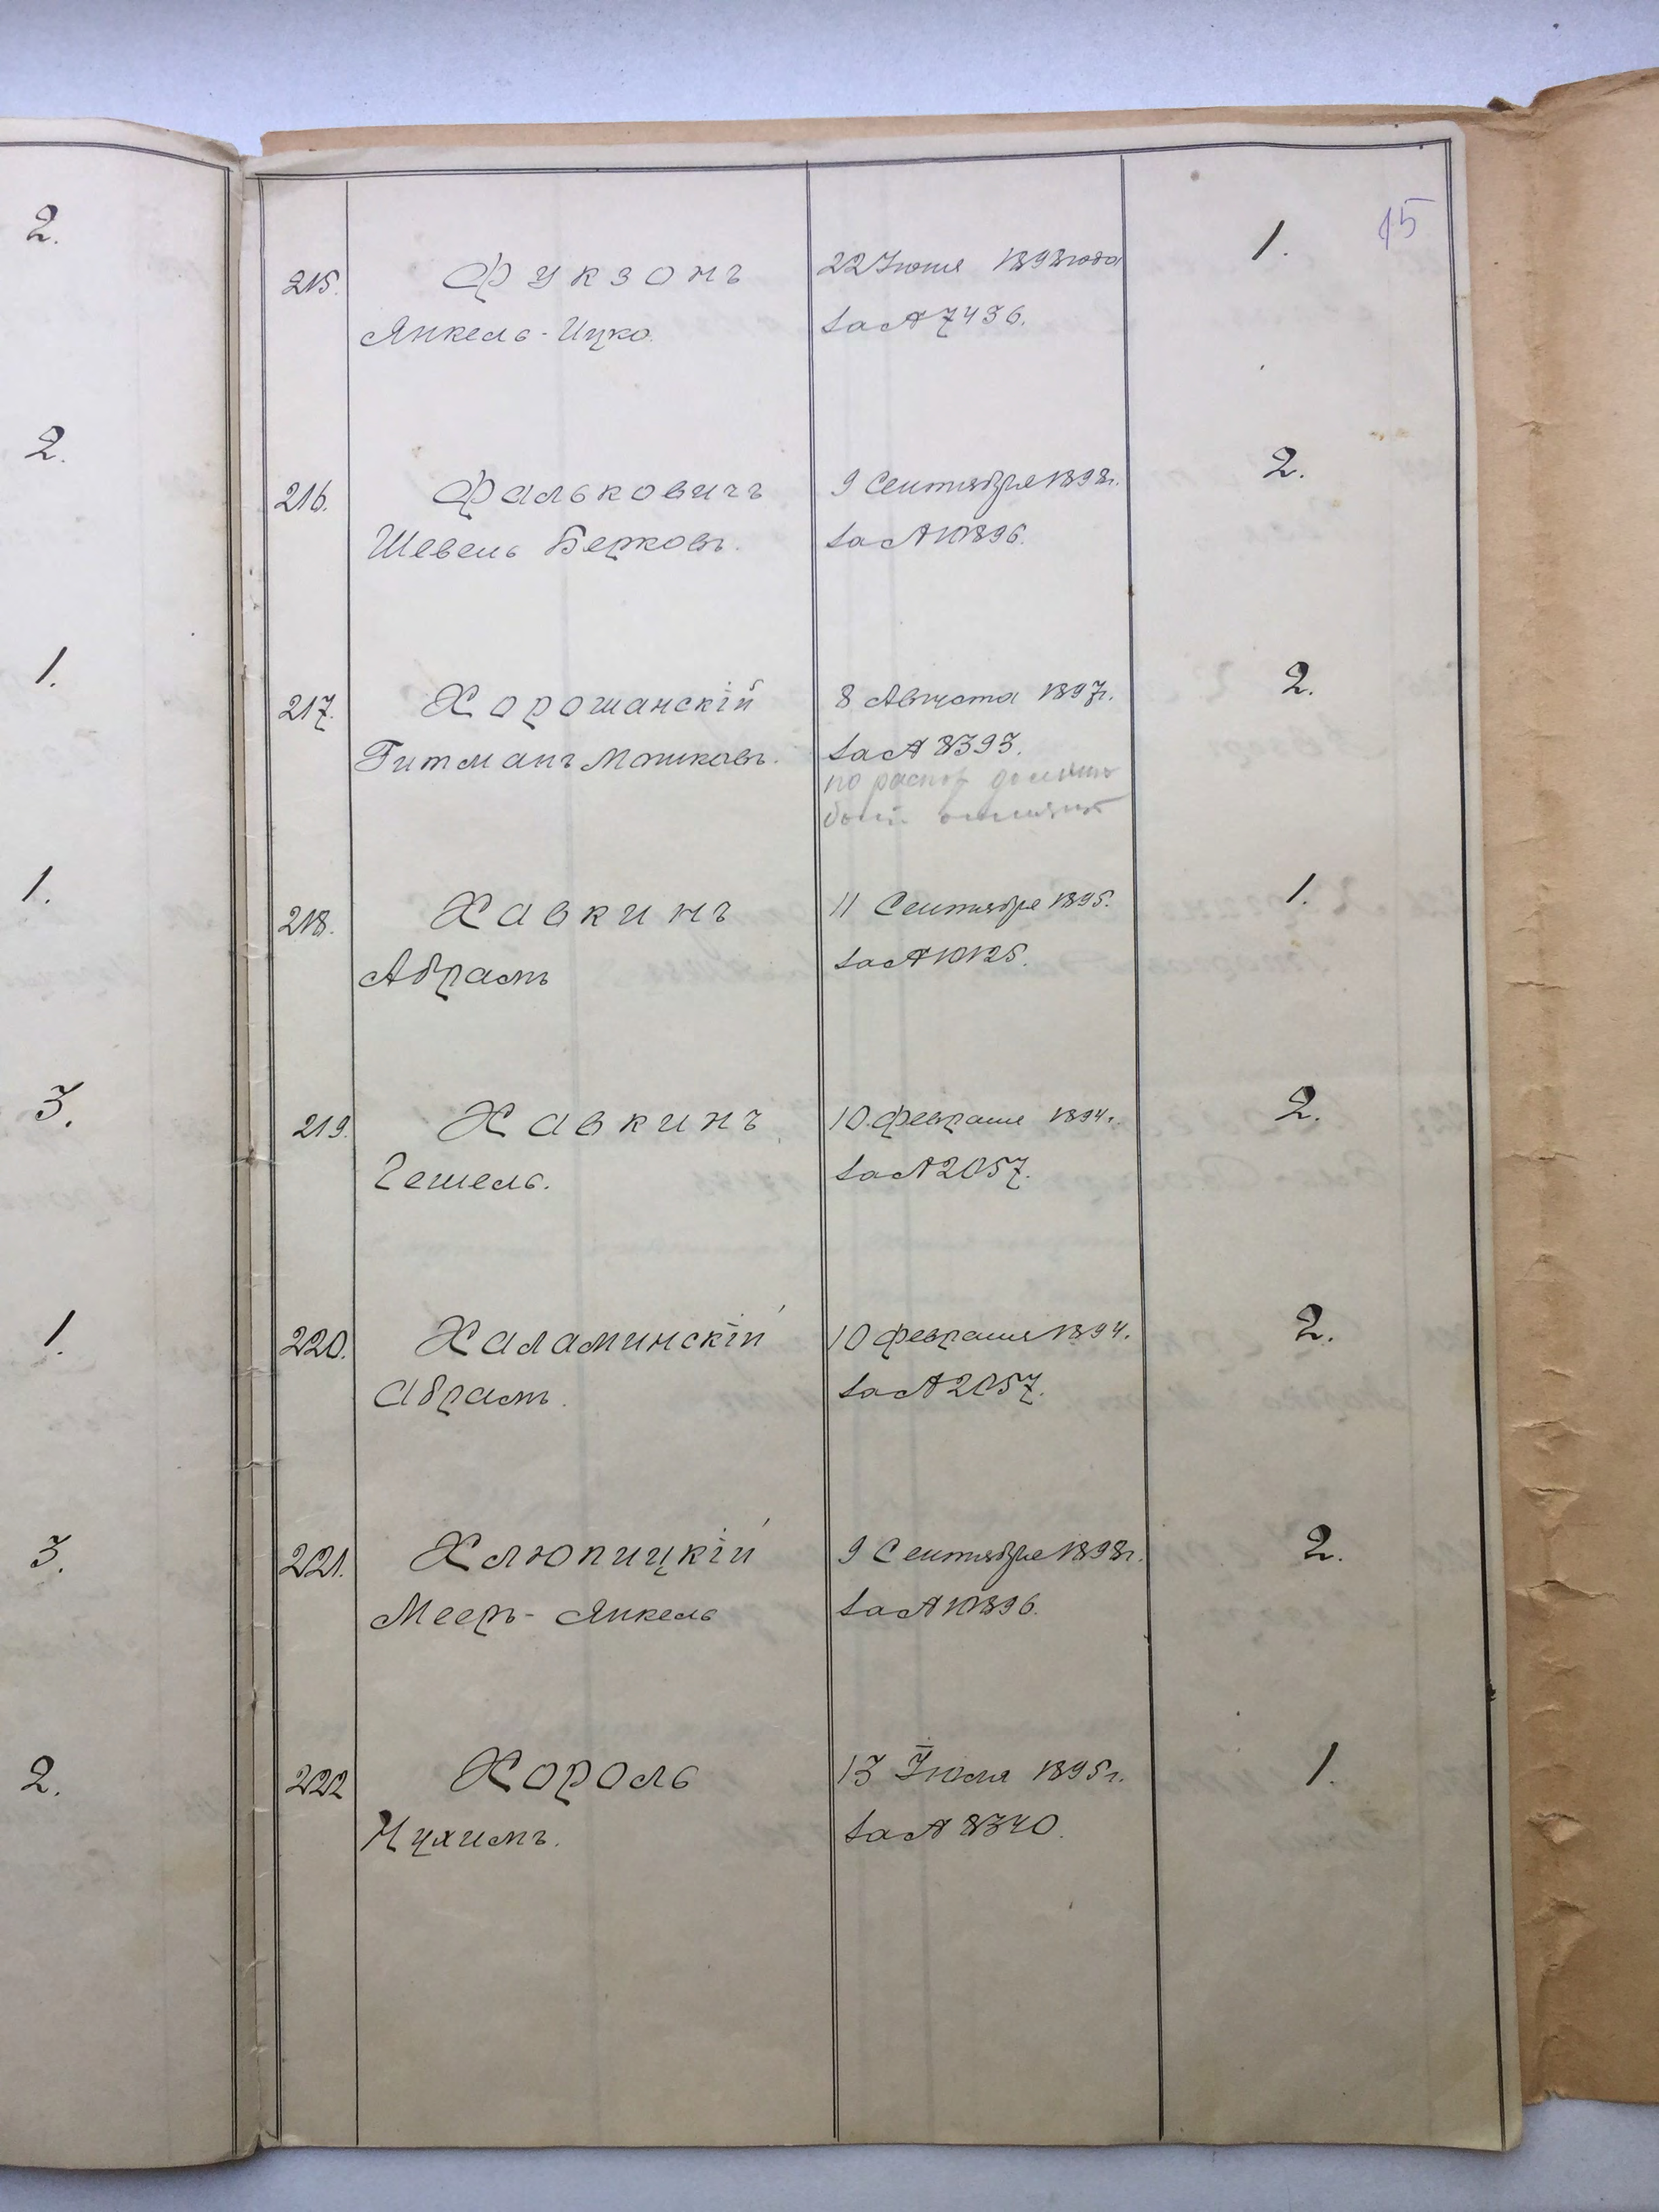 2.
2.
1.
1.
3.
1.
3.
2.
15
215. Фукзонъ 22 Іюня 1893 года 1.
Янкель-Ицко. за № 7436.
216. Фальковичъ 9 Сентября 1898г. 2.
Шевель Берковъ. за № 10896.
217. Хорошанскій 8 Августа 1897г. 2.
Гитманъ Мошковъ. за № 8393.
по распор
218. Хавкинъ 11 Сентября 1895. 1.
Абрамъ за № 10125.
219. Хавкинъ 10 Февраля 1894г. 2.
Гешель. за № 2057.
220. Халаминскій 10 Февраля 1894. 2.
Абрамъ. за № 2057.
221. Хлюпицкій 9 Сентября 1898г. 2.
Мееръ-Янкель за № 10896.
222 Хороль 13 Іюля 1895г. 1.
Нухимъ. за № 8340.